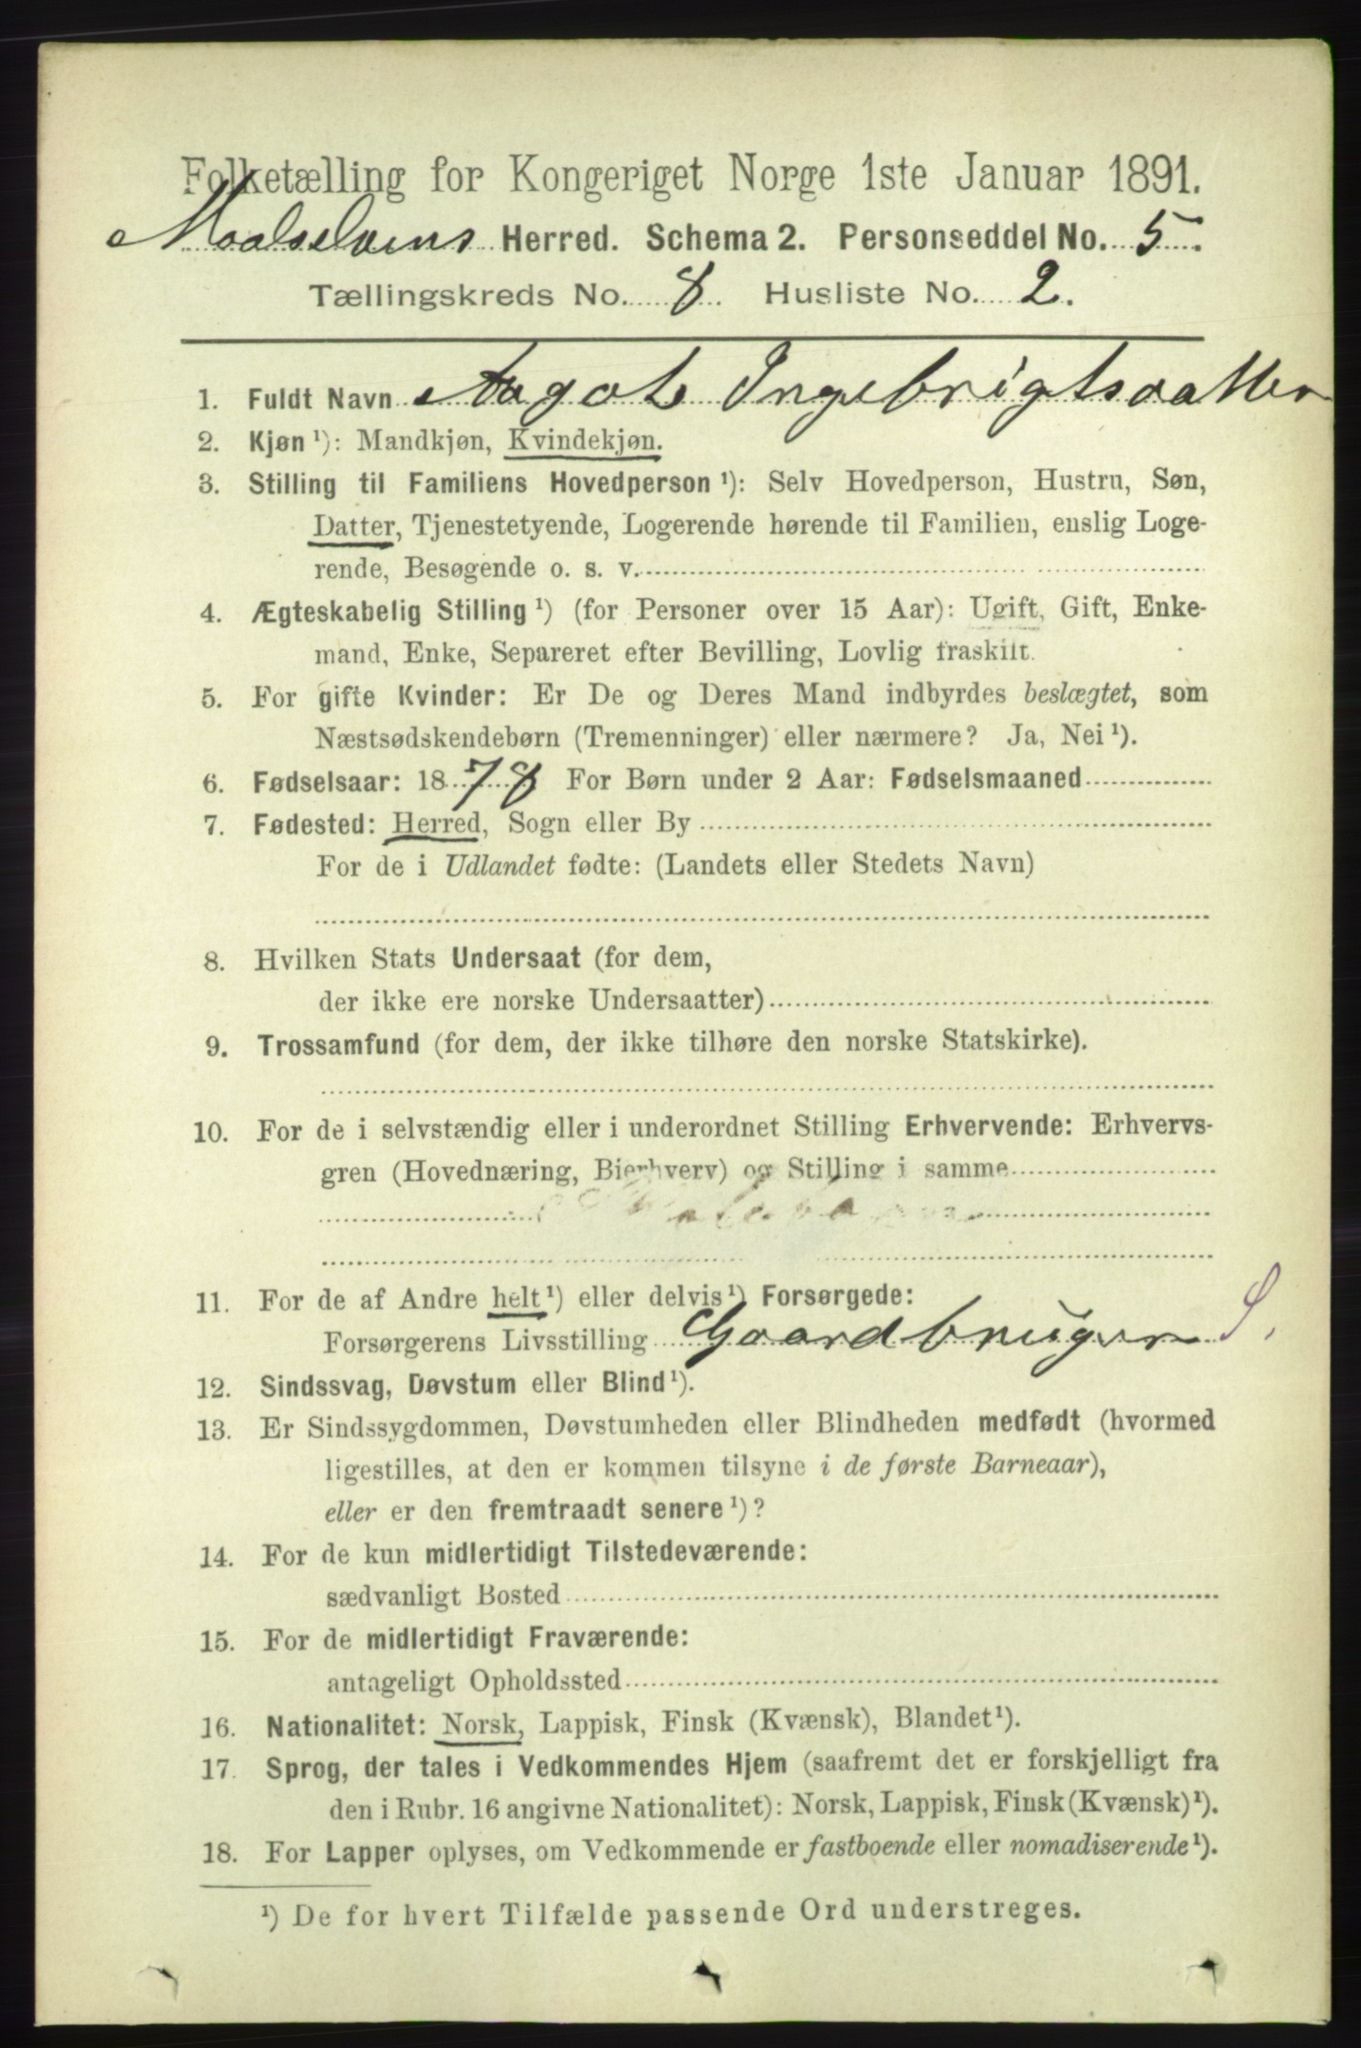 Folketælling for Kongeriget Norge 1ste Januar 1891.
Maalselvens Herred. Schema 2. Personseddel No. 5.
Tællingskreds No. 8. Husliste No. 2.
1. Fuldt Navn Aagot Ingebrigtsdatter
2. Kjøn ¹): Mandkjøn, Kvindekjøn.
3. Stilling til Familiens Hovedperson ¹): Selv Hovedperson, Hustru, Søn,
Datter, Tjenestetyende, Logerende hørende til Familien, enslig Loge-
rende, Besøgende o. s. v.
4. Ægteskabelig Stilling ¹) (for Personer over 15 Aar): Ugift, Gift, Enke-
mand, Enke, Separeret efter Bevilling, Lovlig fraskilt.
5. For gifte Kvinder: Er De og Deres Mand indbyrdes beslægtet, som
Næstsødskendebørn (Tremenninger) eller nærmere? Ja, Nei ¹).
6. Fødselsaar: 1878 For Børn under 2 Aar: Fødselsmaaned
7. Fødested: Herred, Sogn eller By
For de i Udlandet fødte: (Landets eller Stedets Navn)
8. Hvilken Stats Undersaat (for dem,
der ikke ere norske Undersaatter)
9. Trossamfund (for dem, der ikke tilhøre den norske Statskirke).
10. For de i selvstændig eller i underordnet Stilling Erhvervende: Erhvervs-
gren (Hovednæring, Bierhverv) og Stilling i samme
11. For de af Andre helt ¹) eller delvis ¹) Forsørgede:
Forsørgerens Livsstilling Gaardbruger S.
12. Sindssvag, Døvstum eller Blind ¹).
13. Er Sindssygdommen, Døvstumheden eller Blindheden medfødt (hvormed
ligestilles, at den er kommen tilsyne i de første Barneaar),
eller er den fremtraadt senere ¹)?
14. For de kun midlertidigt Tilstedeværende:
sædvanligt Bosted
15. For de midlertidigt Fraværende:
antageligt Opholdssted
16. Nationalitet: Norsk, Lappisk, Finsk (Kvænsk), Blandet ¹).
17. Sprog, der tales i Vedkommendes Hjem (saafremt det er forskjelligt fra
den i Rubr. 16 angivne Nationalitet): Norsk, Lappisk, Finsk (Kvænsk) ¹).
18. For Lapper oplyses, om Vedkommende er fastboende eller nomadiserende ¹).
¹) De for hvert Tilfælde passende Ord understreges.